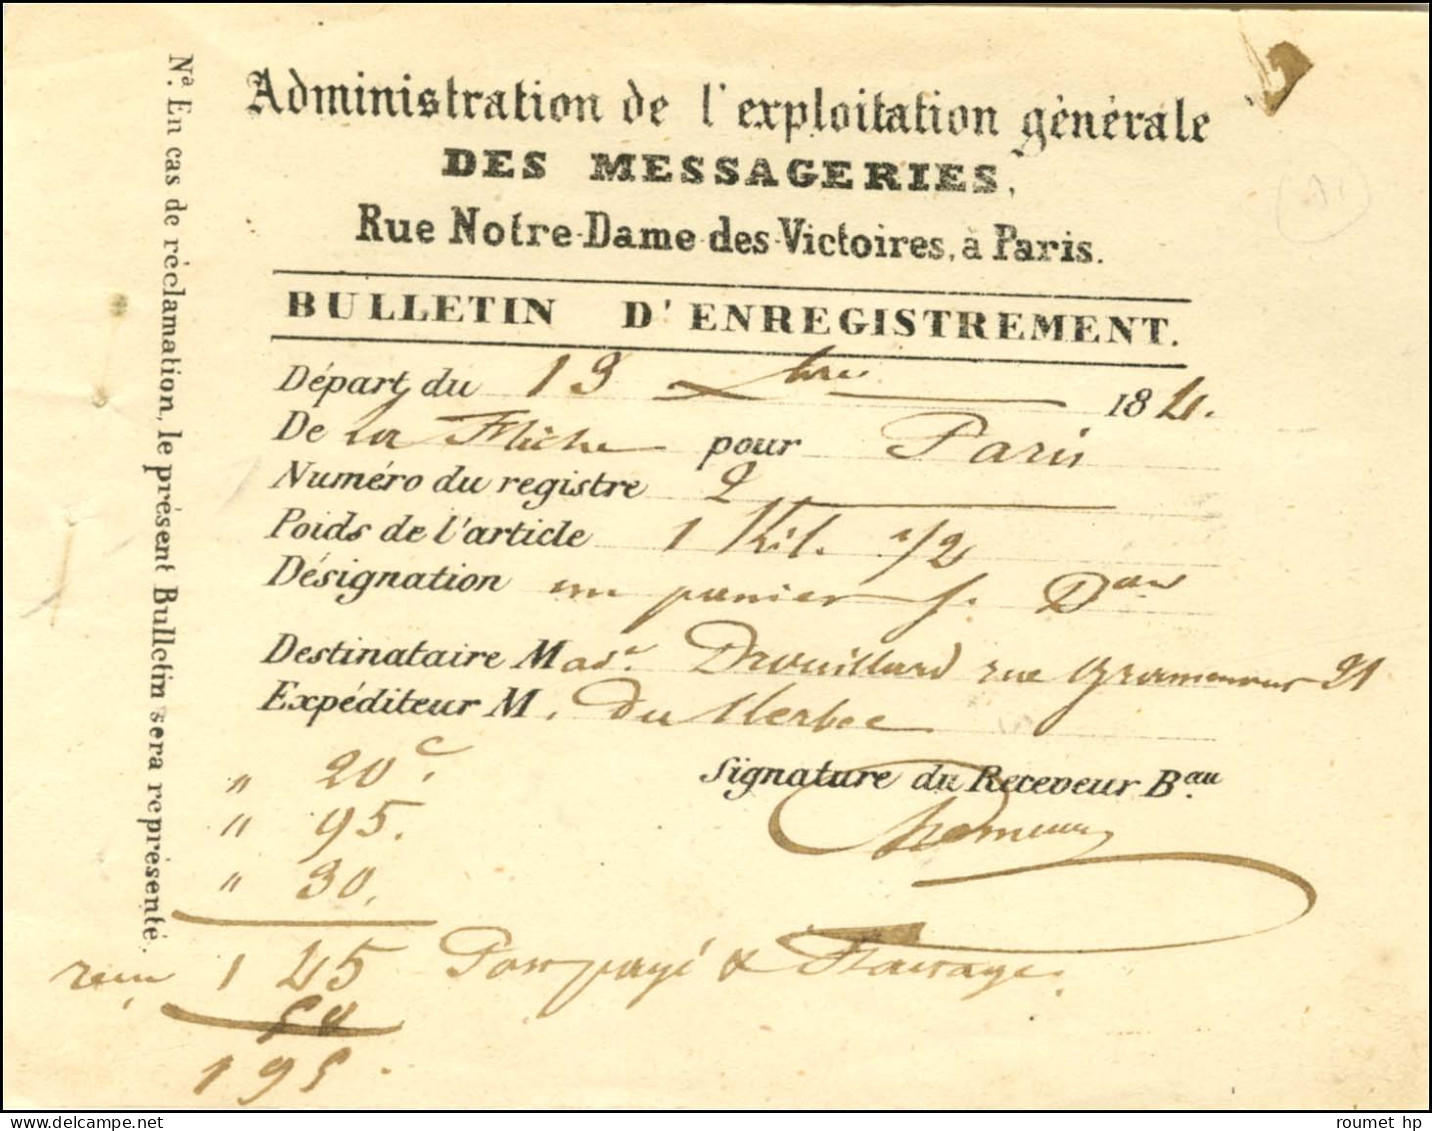 Administration de l'exploitation générale
DES MESSAGERIES,
Rue Notre-Dame-des-Victoires, à Paris.
BULLETIN D'ENREGISTREMENT.
Départ du 13 Xbre 184
De La Flèche pour Paris
Numéro du registre 2
Poids de l'article 1 Kil. 1/2
Désignation un panier f. Dau
Destinataire Made Drouillard rue 21
Expéditeur M. du
Signature du Receveur Bau
" 20c.
" 95.
" 30.
1 45 Port payé &
50
1 95.
Na. En cas de réclamation, le présent Bulletin sera représenté.
(A1)
roumet hp